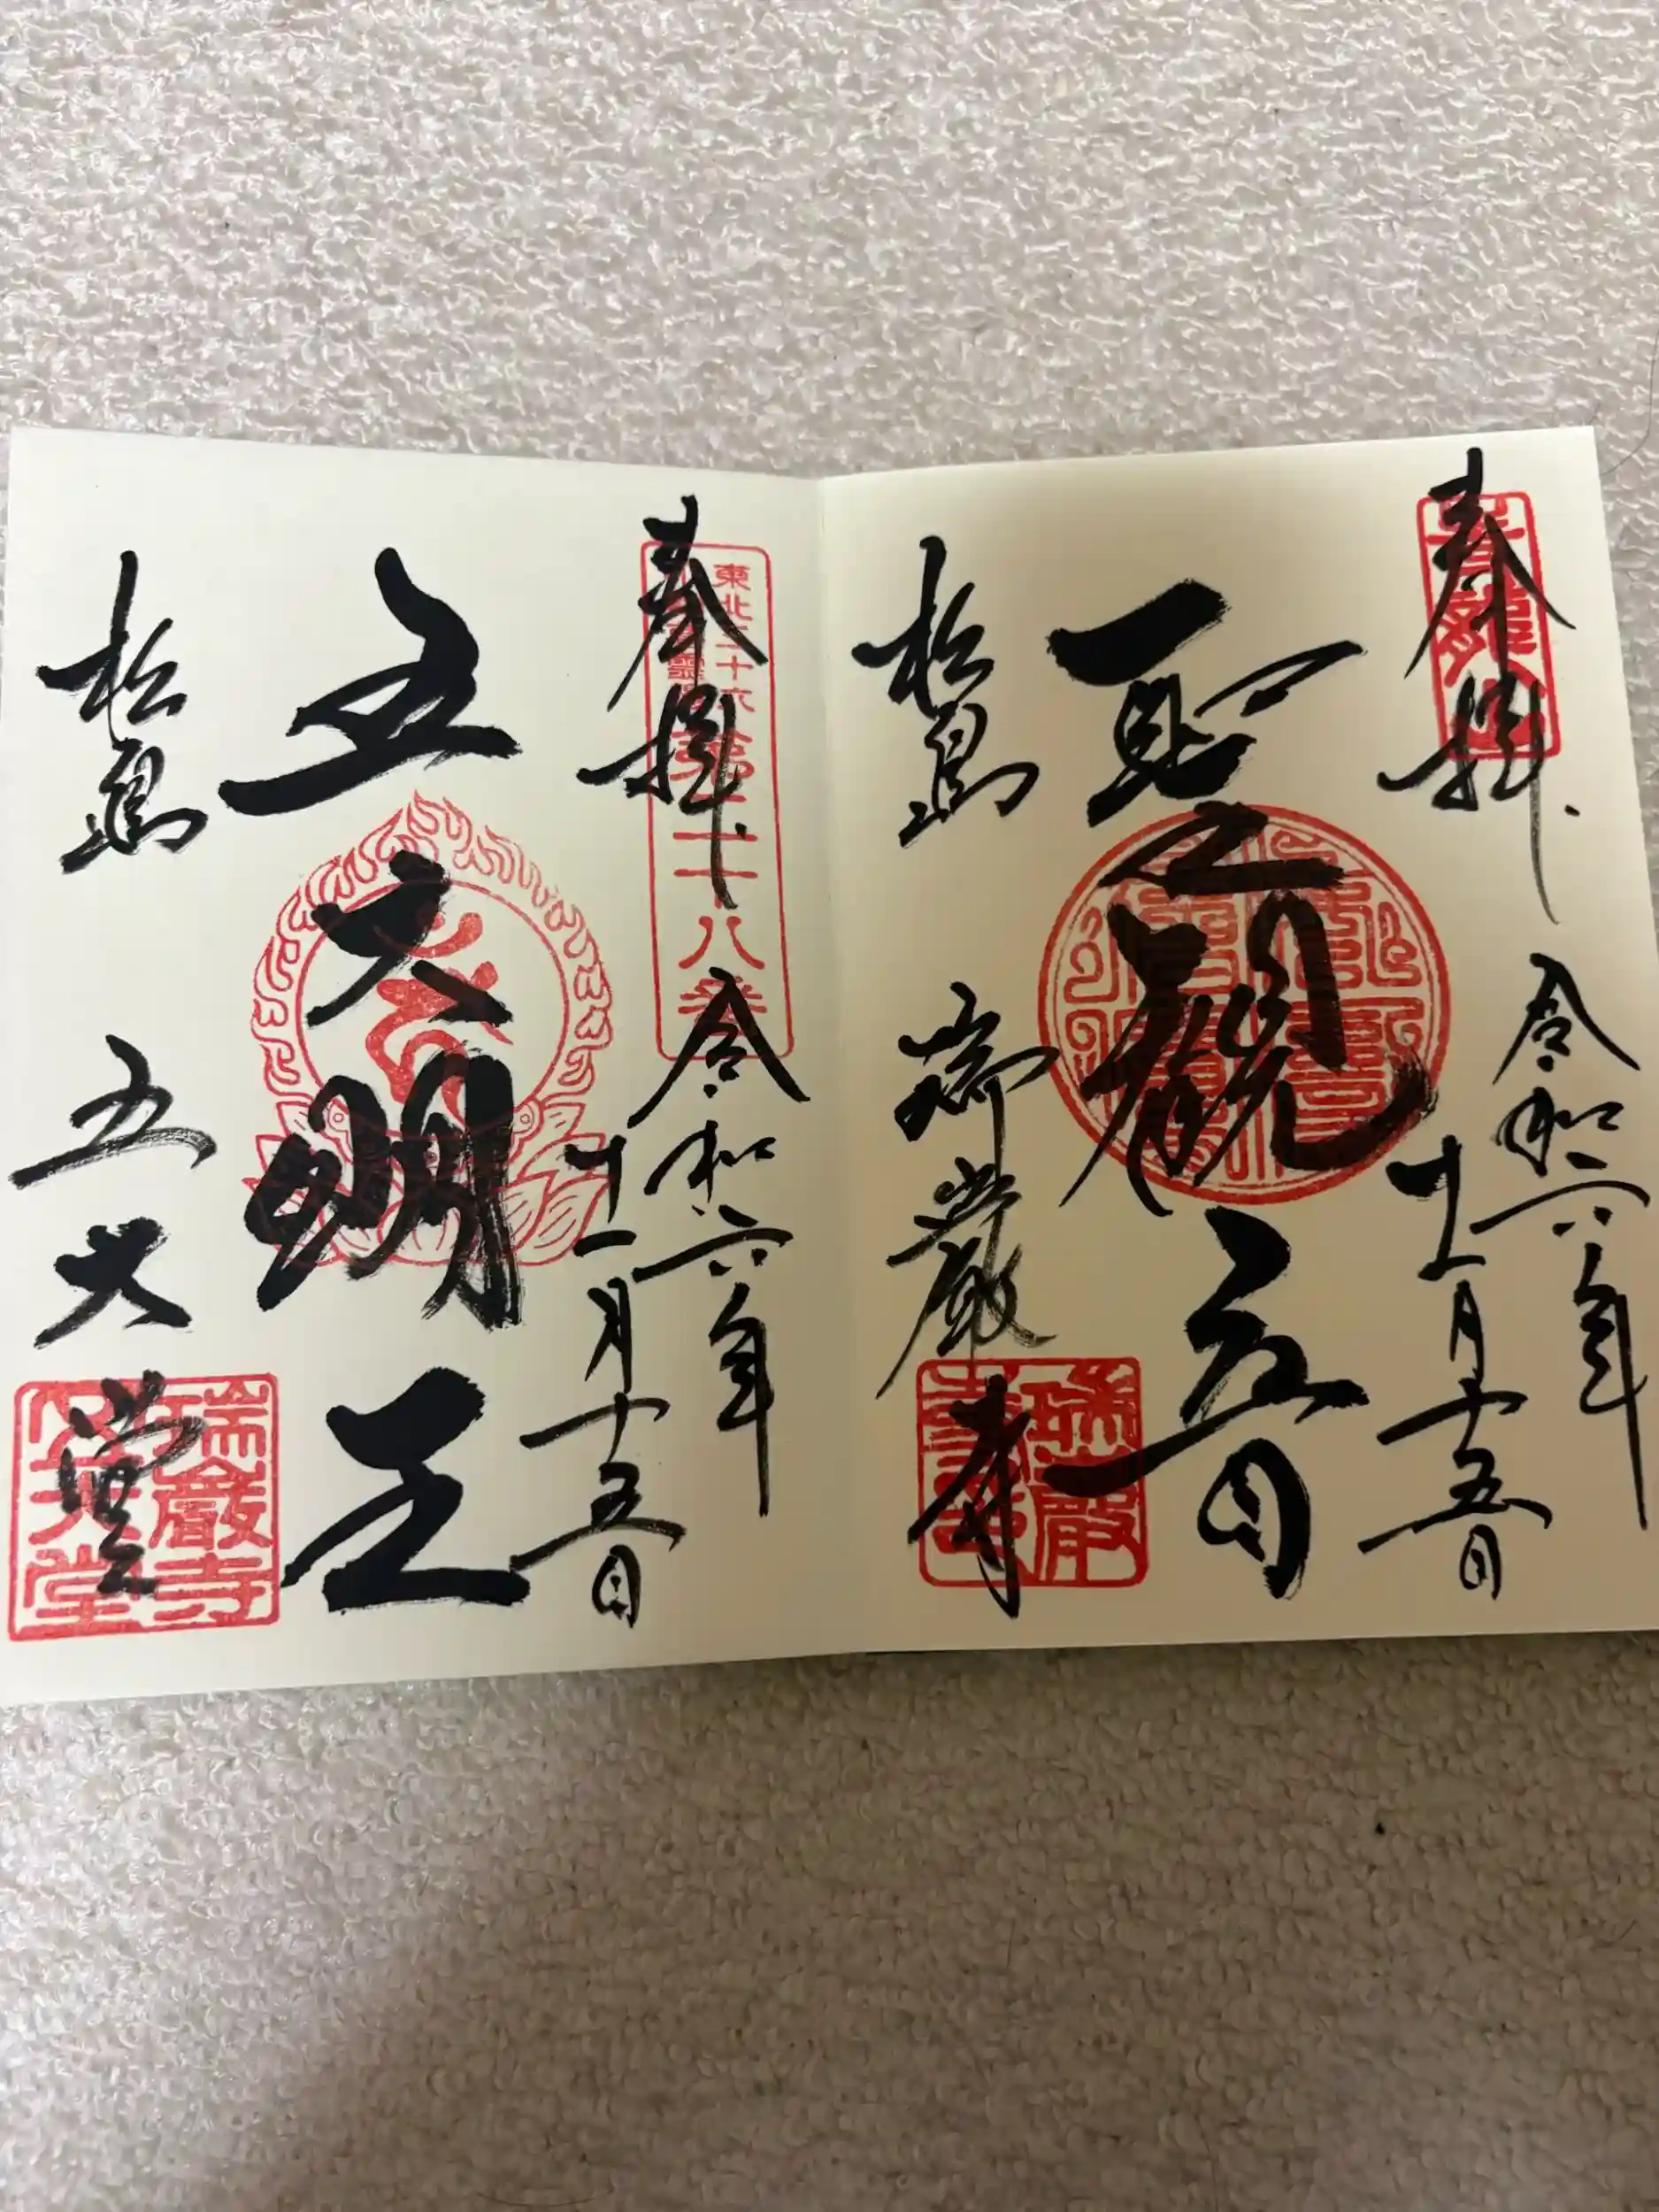 奉拝
令和六年
十一月十五日
聖観世音
松島
瑞巌寺
瑞巌
奉拝
令和六年
十一月十五日
東北三十六
第二十八番
五大明王
松島
五大堂
瑞巌寺
五大堂